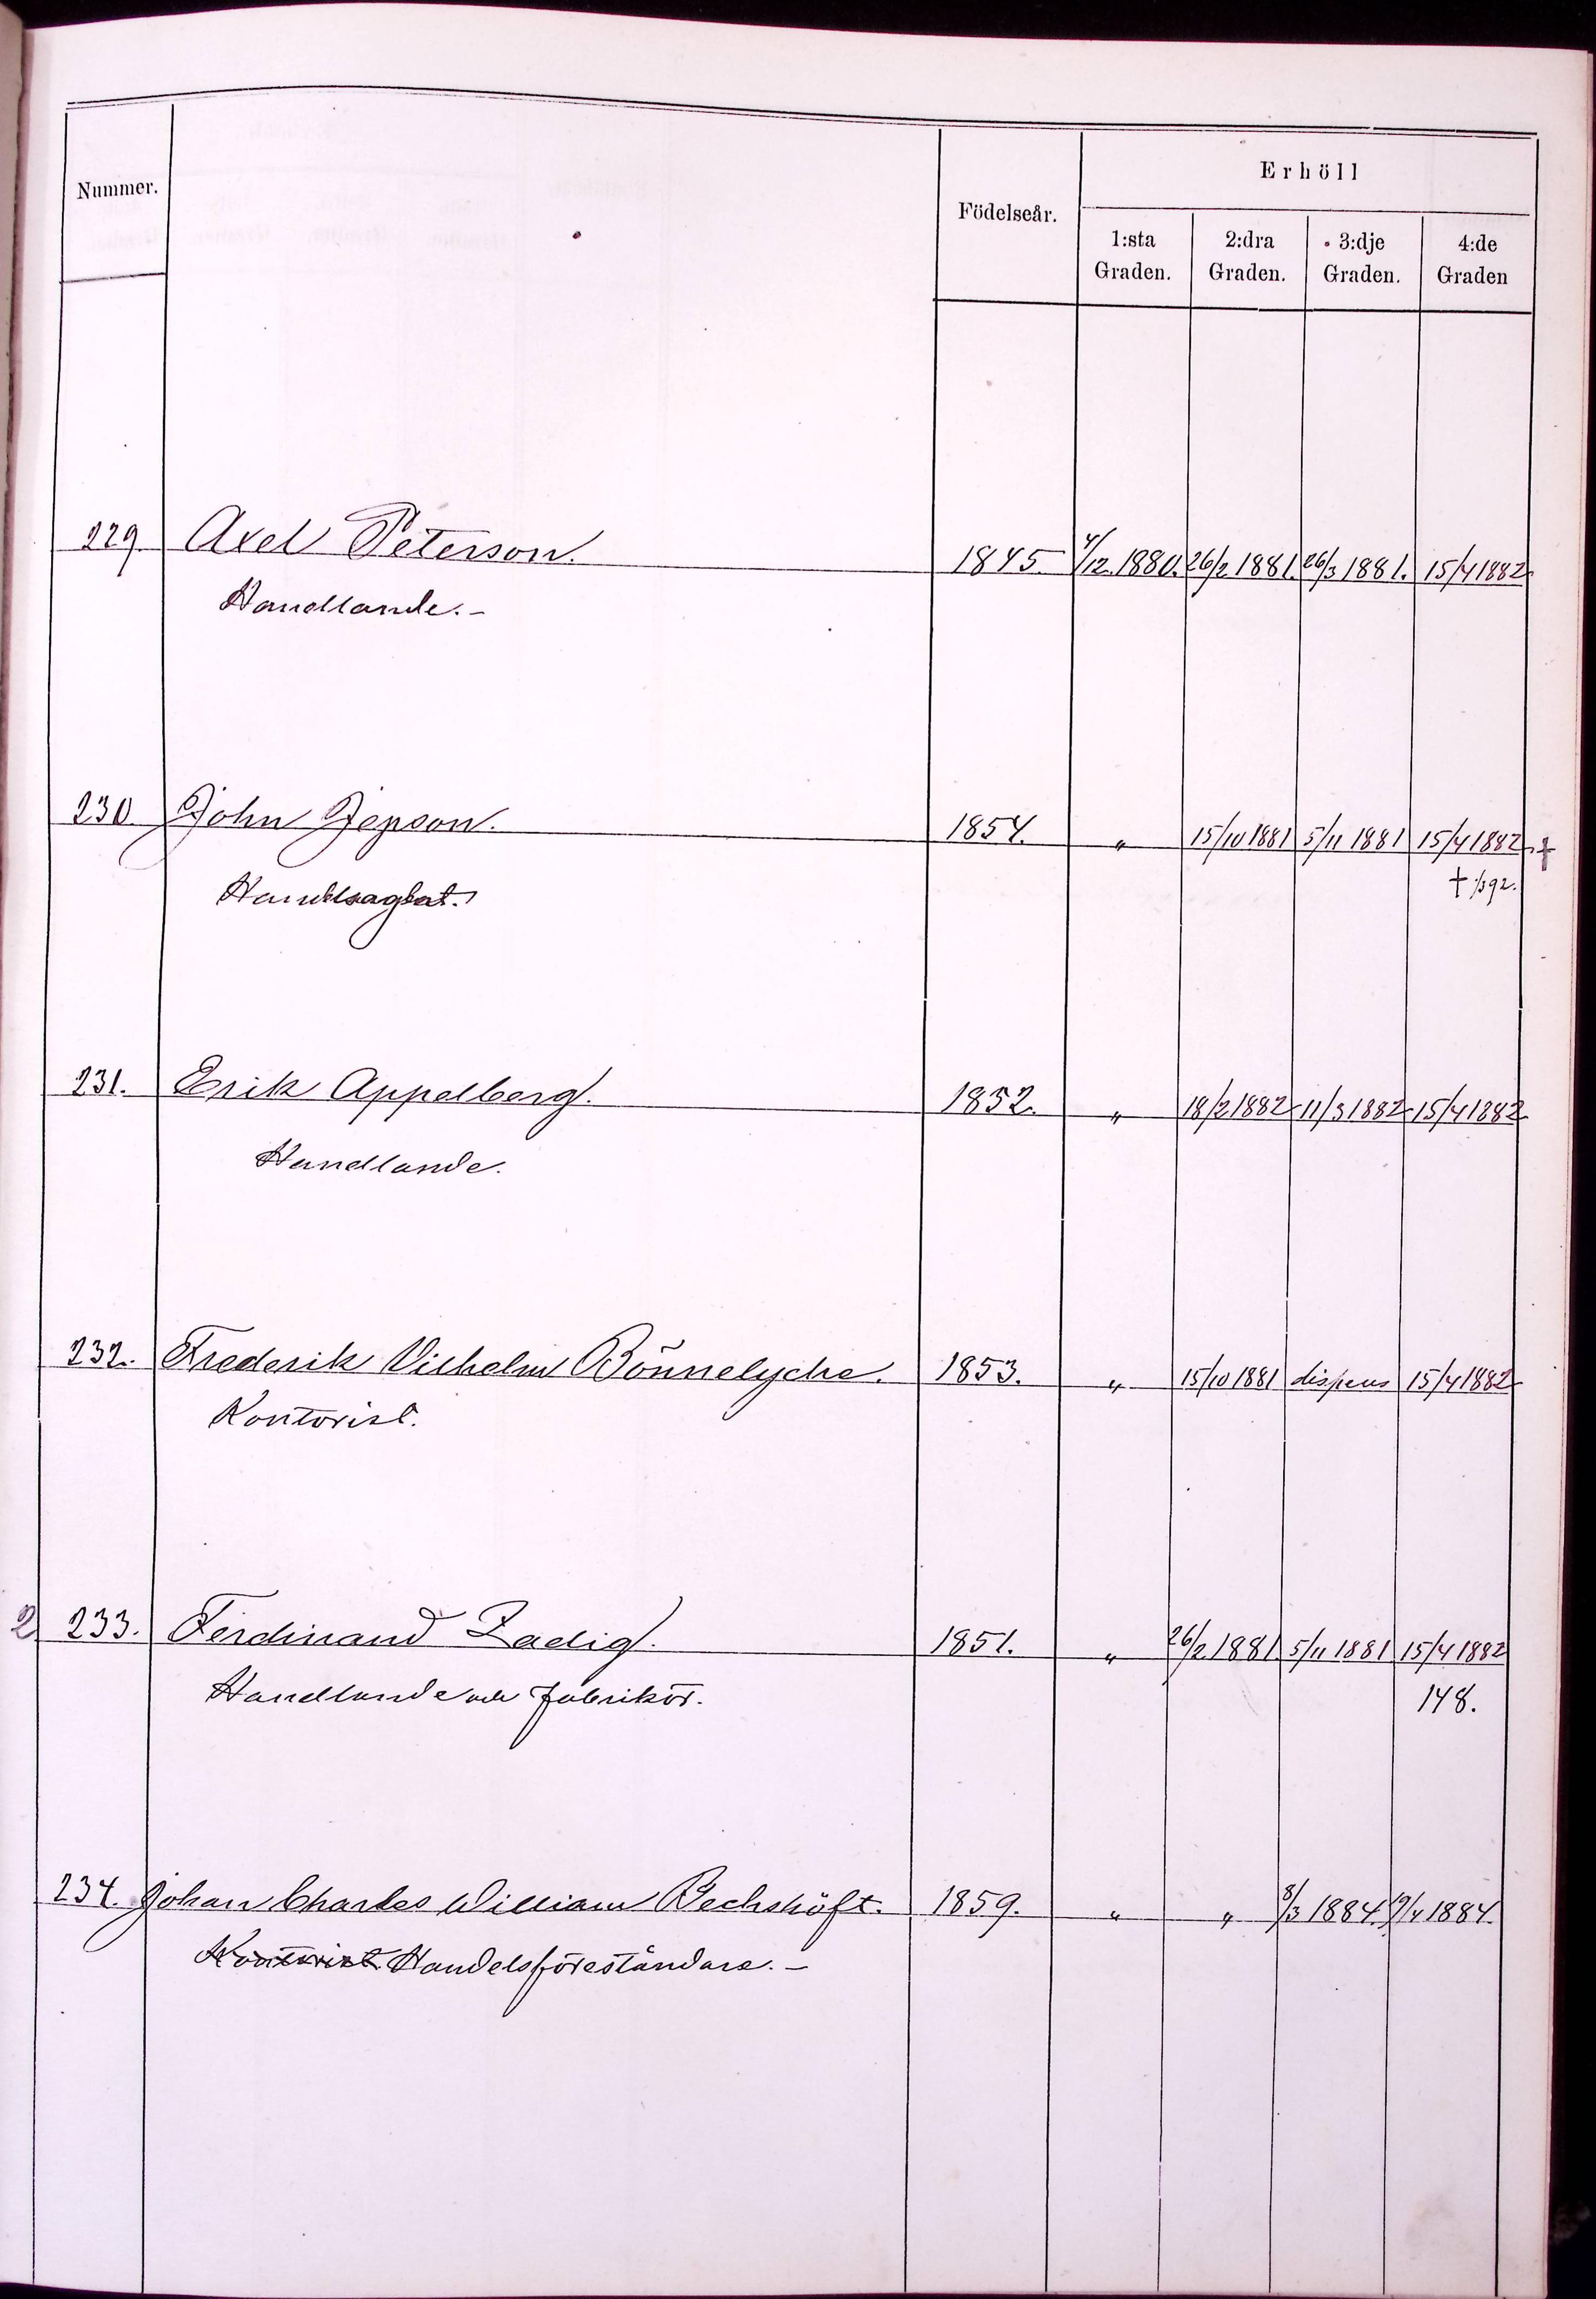 Nummer.
Födelseår.
Erhöll
1:sta Graden.
2:dra Graden.
3:dje Graden.
4:de Graden
229 Axel Peterson. 1845. 4/12 1880. 26/2 1881. 26/3 1881. 15/4 1882.
Handlande.-
230 John Jepson. 1854. „ 15/10 1881 5/11 1881 15/4 1882 †
Handelsagent. † 1/3 92.
231. Erik Appelberg. 1852. „ 18/2 1882 11/3 1882 15/4 1882
Handlande.
232. Frederik Vilhelm Bönnelyche. 1853. „ 15/10 1881 dispens 15/4 1882
Kontorist.
2 233. Ferdinand Zadig. 1851. „ 26/2 1881 5/11 1881 15/4 1882
Handlande och Fabrikör. 148.
234. Johan Charles William Bechshöft. 1859. „ „ 8/3 1884. 19/4 1884.
Kontorist. Handelsföreståndare.-